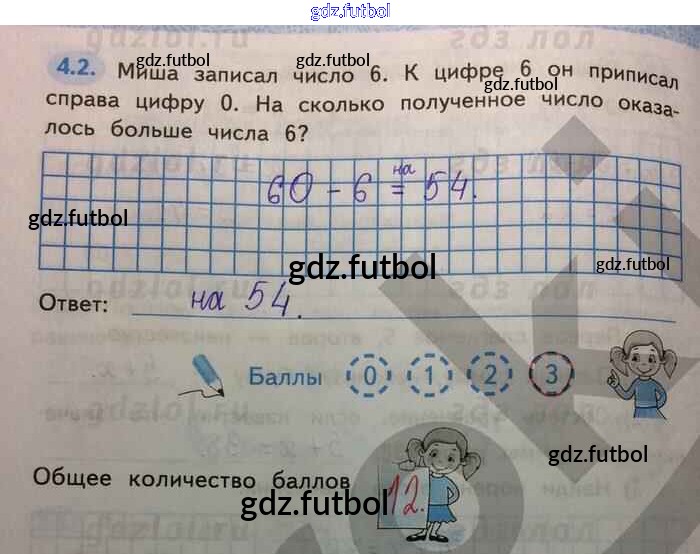 gdz.futbol
4.2. Миша записал число 6. К цифре 6 он приписал
справа цифру 0. На сколько полученное число оказа-
лось больше числа 6?
gdz.futbol
gdz.futbol
gdz.futbol
60 - 6 = на 54.
gdz.futbol
gdz.futbol
gdz.futbol
Ответ: на 54.
Баллы 0 1 2 3
gdz.futbol
Общее количество баллов 12.
gdz.futbol